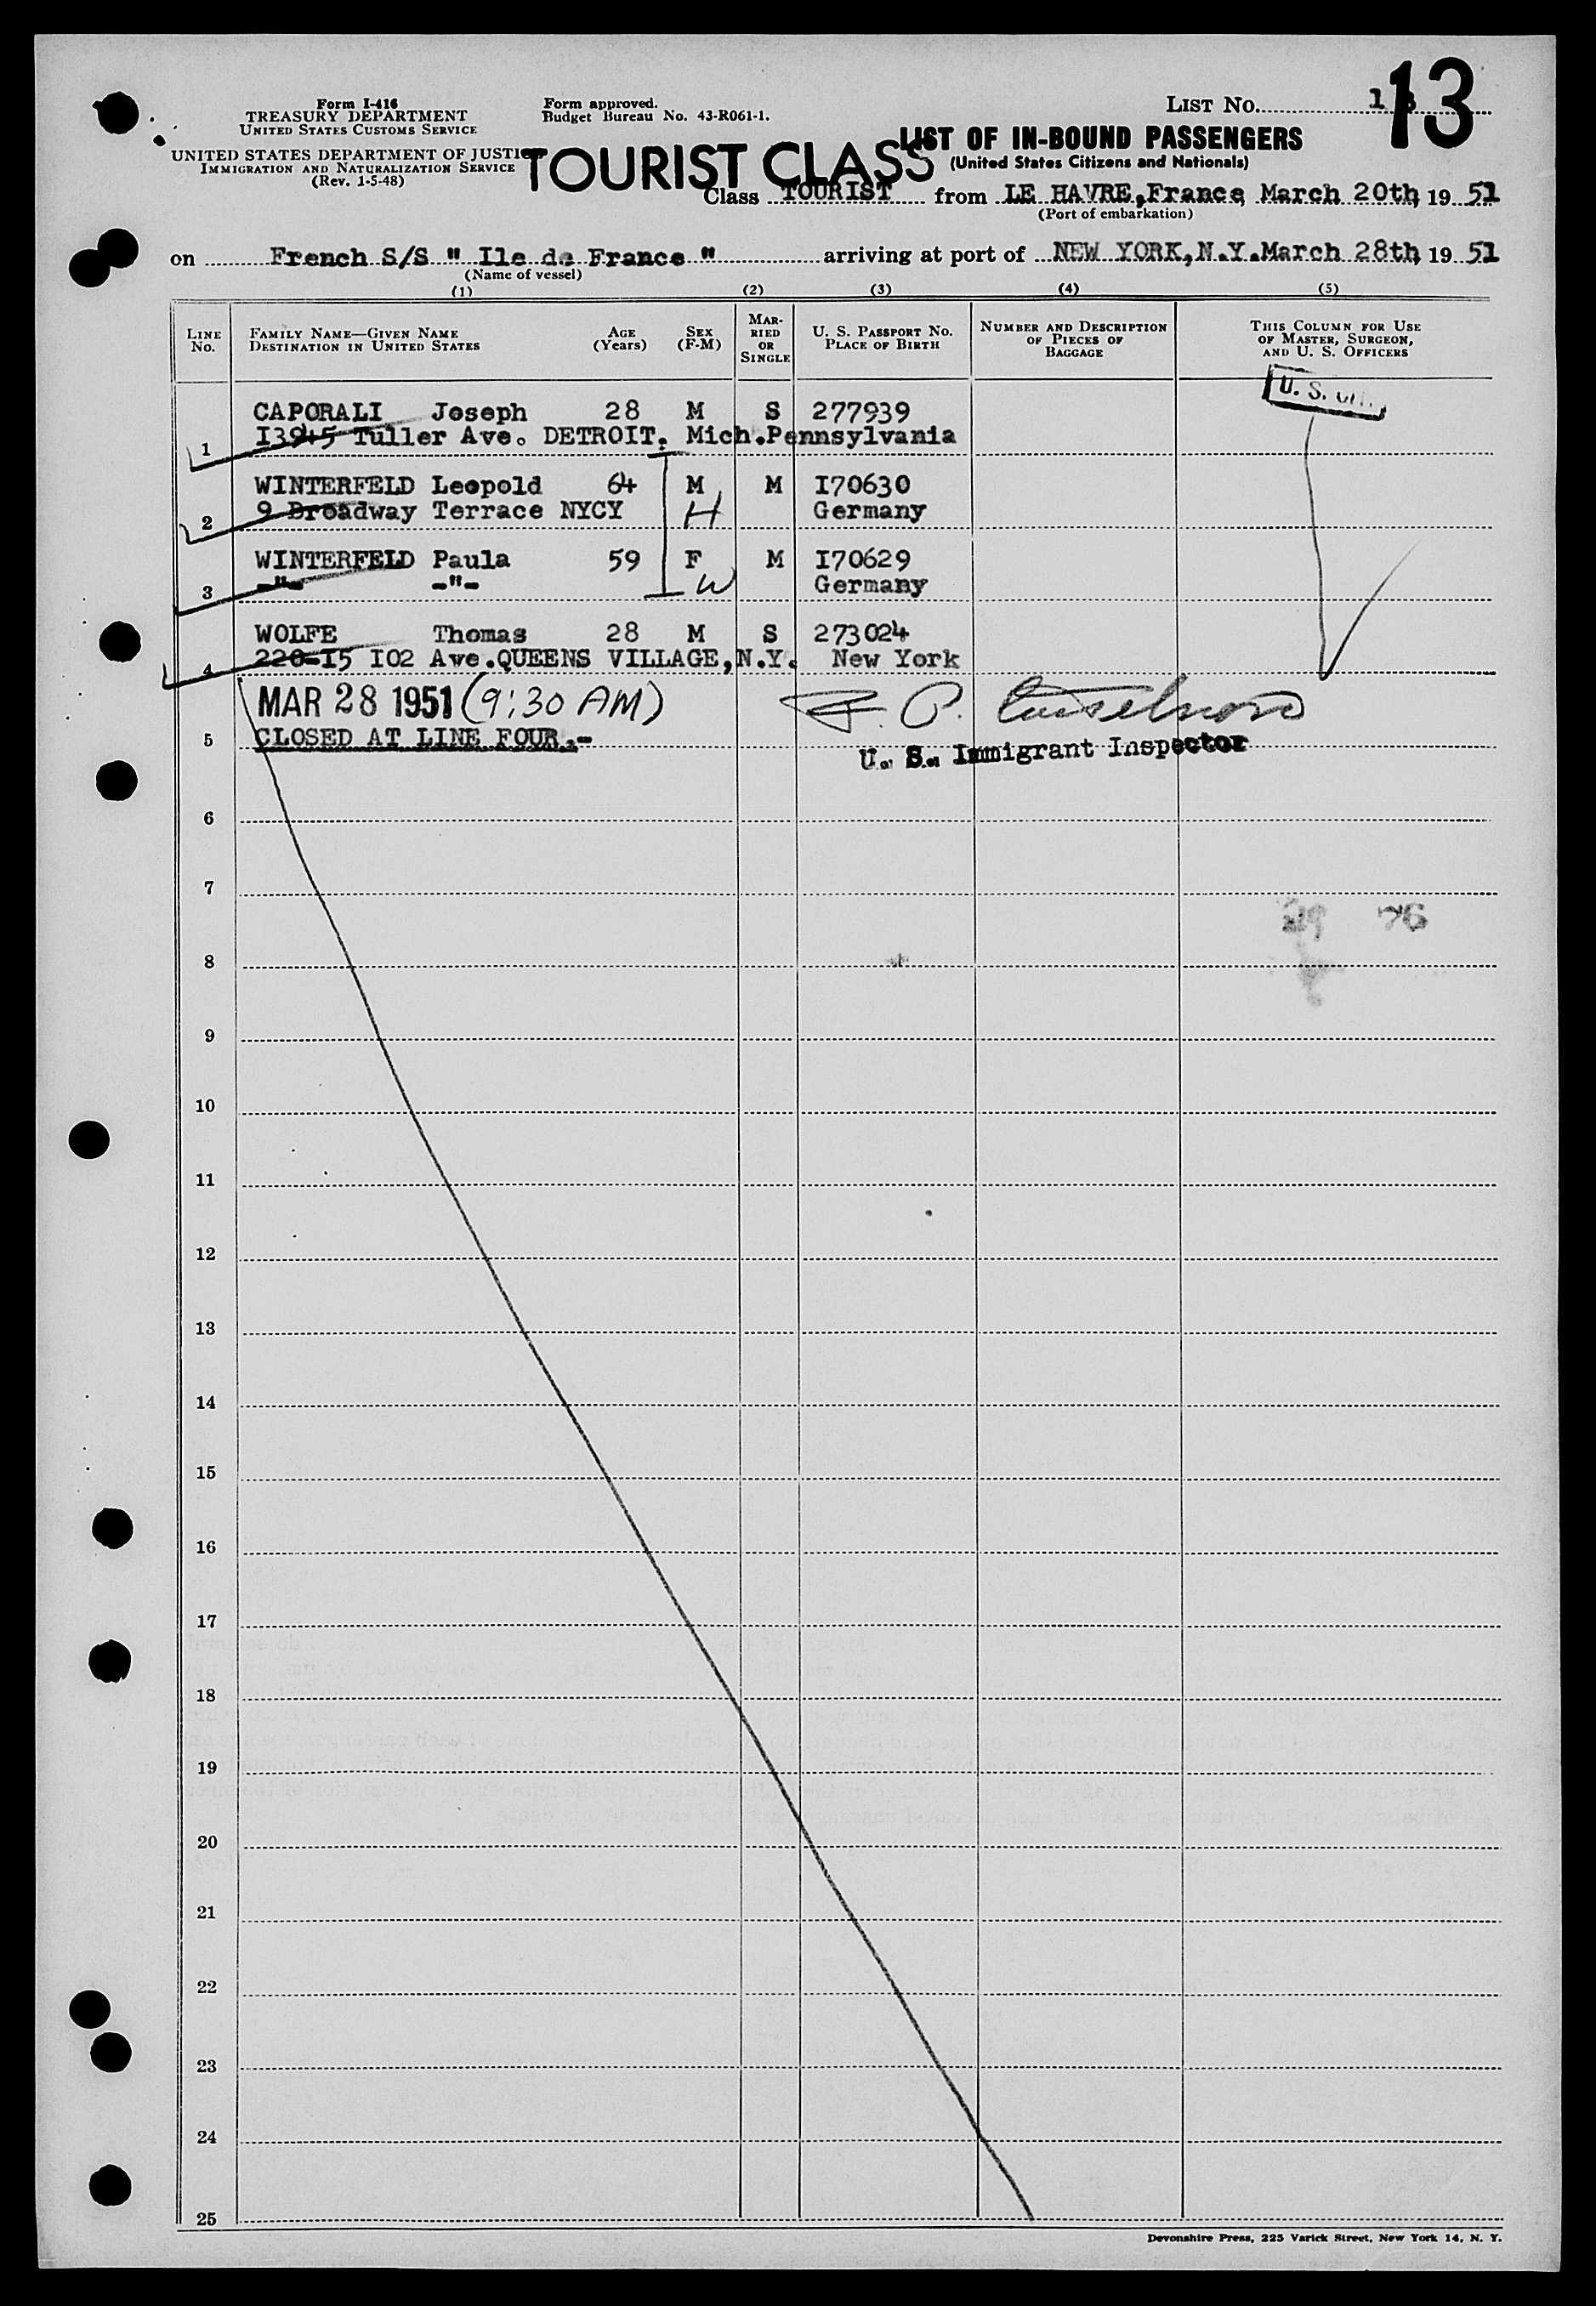 Form I-416
TREASURY DEPARTMENT
UNITED STATES CUSTOMS SERVICE
UNITED STATES DEPARTMENT OF JUSTICE
IMMIGRATION AND NATURALIZATION SERVICE
(Rev. 1-5-48)
Form approved.
Budget Bureau No. 43-R061-1.
LIST No. 13
13
TOURIST CLASS
LIST OF IN-BOUND PASSENGERS
(United States Citizens and Nationals)
Class TOURIST from LE HAVRE, France, March 20th, 19 51
(Port of embarkation)
on French S/S " Ile de France " arriving at port of NEW YORK, N.Y. March 28th, 19 51
(Name of vessel)
(1) (2) (3) (4) (5)
LINE No. FAMILY NAME—GIVEN NAME DESTINATION IN UNITED STATES AGE (Years) SEX (F-M) MARRIED OR SINGLE U. S. PASSPORT No. PLACE OF BIRTH NUMBER AND DESCRIPTION OF PIECES OF BAGGAGE THIS COLUMN FOR USE OF MASTER, SURGEON, AND U. S. OFFICERS
U. S. CIT.
CAPORALI Joseph 28 M S 277939
1 I3945 Tuller Ave. DETROIT. Mich. Pennsylvania
WINTERFELD Leopold 64 M M I70630
2 9 Broadway Terrace NYCY H Germany
WINTERFELD Paula 59 F M I70629
3 -"- -"- W Germany
WOLFE Thomas 28 M S 273024
4 220-I5 I02 Ave. QUEENS VILLAGE, N.Y. New York
MAR 28 1951 (9:30 AM)
5 CLOSED AT LINE FOUR.-
U. S. Immigrant Inspector
6
7
8
9
10
11
12
13
14
15
16
17
18
19
20
21
22
23
24
25
Devonshire Press, 225 Varick Street, New York 14, N. Y.